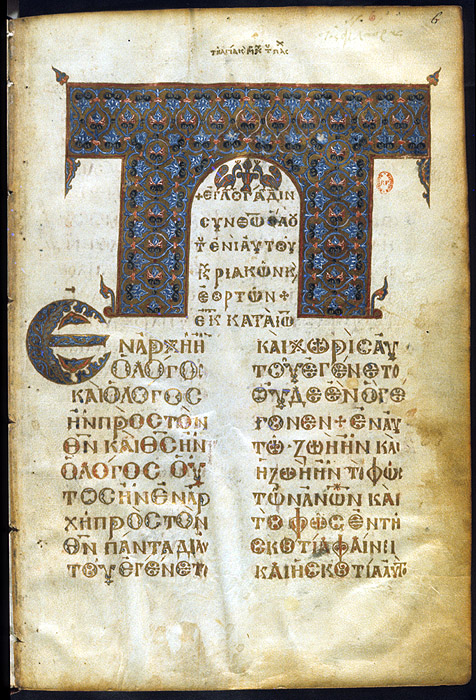 6
+ΕΓΛΟΓΑΔΙΝ
ΕΝΙΑΥΤΟΥ
ΚΥΡΙΑΚΩΝΚ
ΕΟΡΤΩΝ+
ΕΚ ΚΑΤΑΙΩ
ΕΝΑΡΧΗΗ
ΟΛΟΓΟC
ΚΑΙΟΛΟΓΟC
ΗΝΠΡΟCΤΟΝ
ΘΝΚΑΙΘCΗΝ
ΟΛΟΓΟCΟΥ
ΤΟCΗΝΕΝΑΡ
ΧΗΠΡΟCΤΟΝ
ΘΝΠΑΝΤΑΔΙΑΥ
ΤΟΥΕΓΕΝΕΤΟ
ΚΑΙΧΩΡΙCΑΥ
ΤΟΥΕΓΕΝΕΤΟ
ΟΥΔΕΕΝΟΓΕ
ΓΟΝΕΝ+ΕΝΑΥ
ΤΩ·ΖΩΗΗΝΚΑΙ
ΗΖΩΗΗΝΤΙΦΩC
ΤΩΝΑΝΩΝΚΑΙ
ΤΟΦΩCΕΝΤΗ
CΚΟΤΙΑΦΑΙΝΕΙ
ΚΑΙΗCΚΟΤΙΑΑΥΤΟ